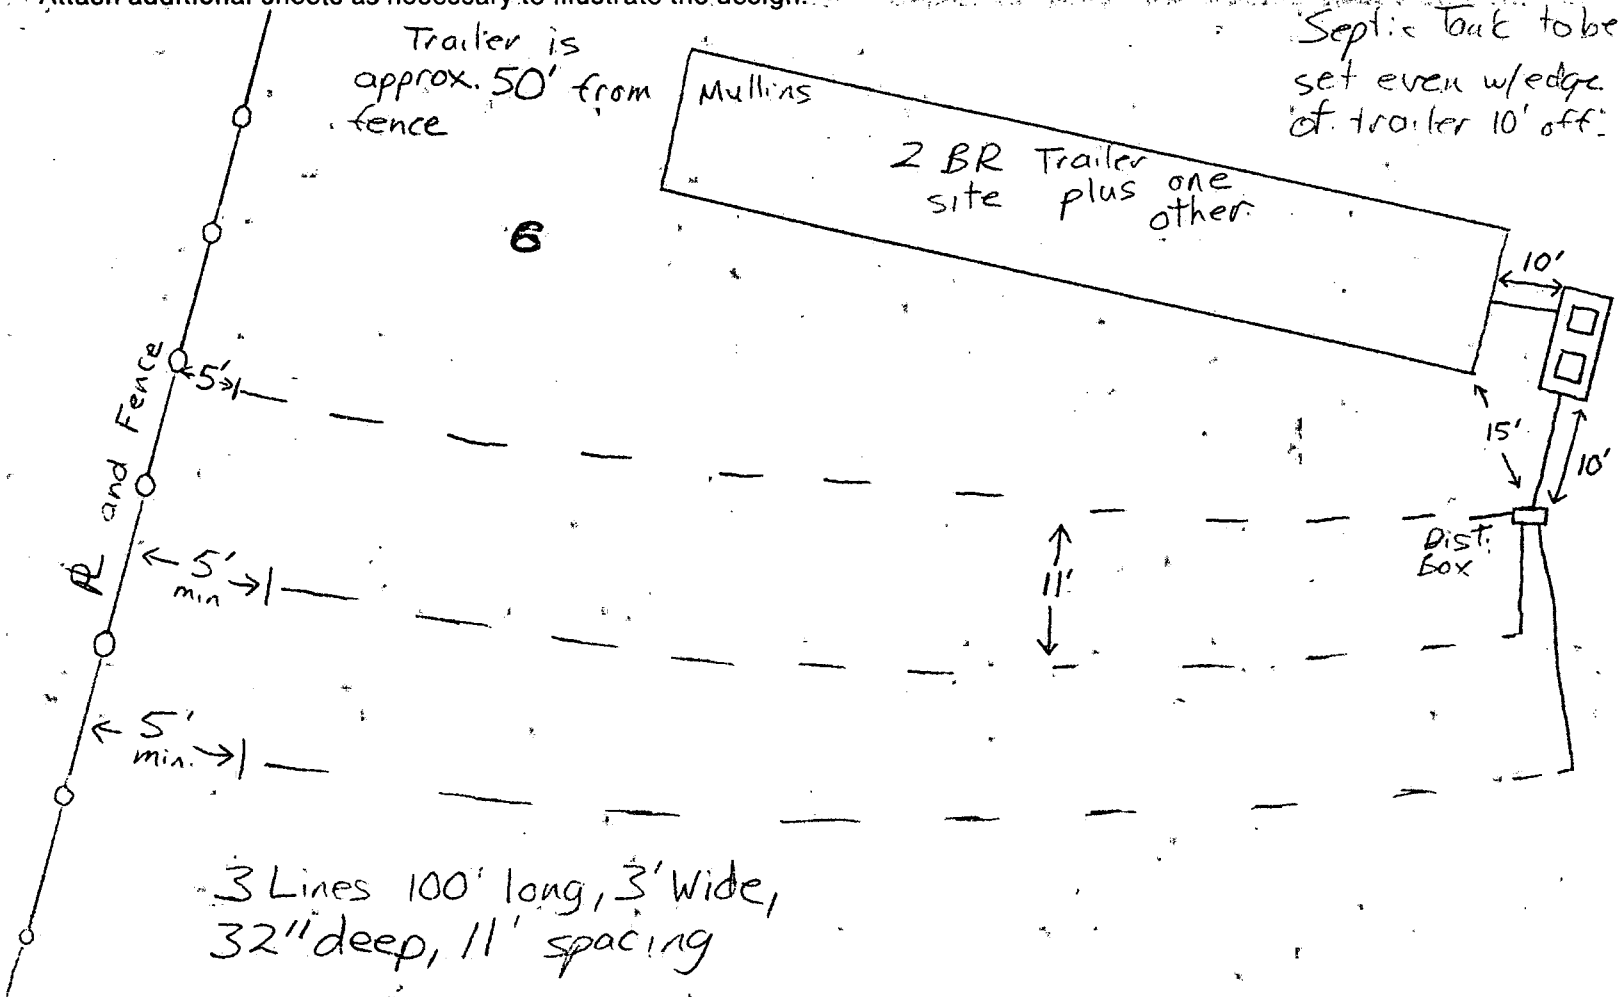 Attach additional sheets as necessary to illustrate the design.
Trailer is
approx. 50' from
fence
Septic Tank to be
set even w/edge
of trailer 10' off.
Mullins
2 BR Trailer
site plus one
other.
6
10'
5'
15'
10'
PL and Fence
Dist.
Box
11'
5'
min
5'
min.
3 Lines 100' long, 3' Wide,
32" deep, 11' spacing